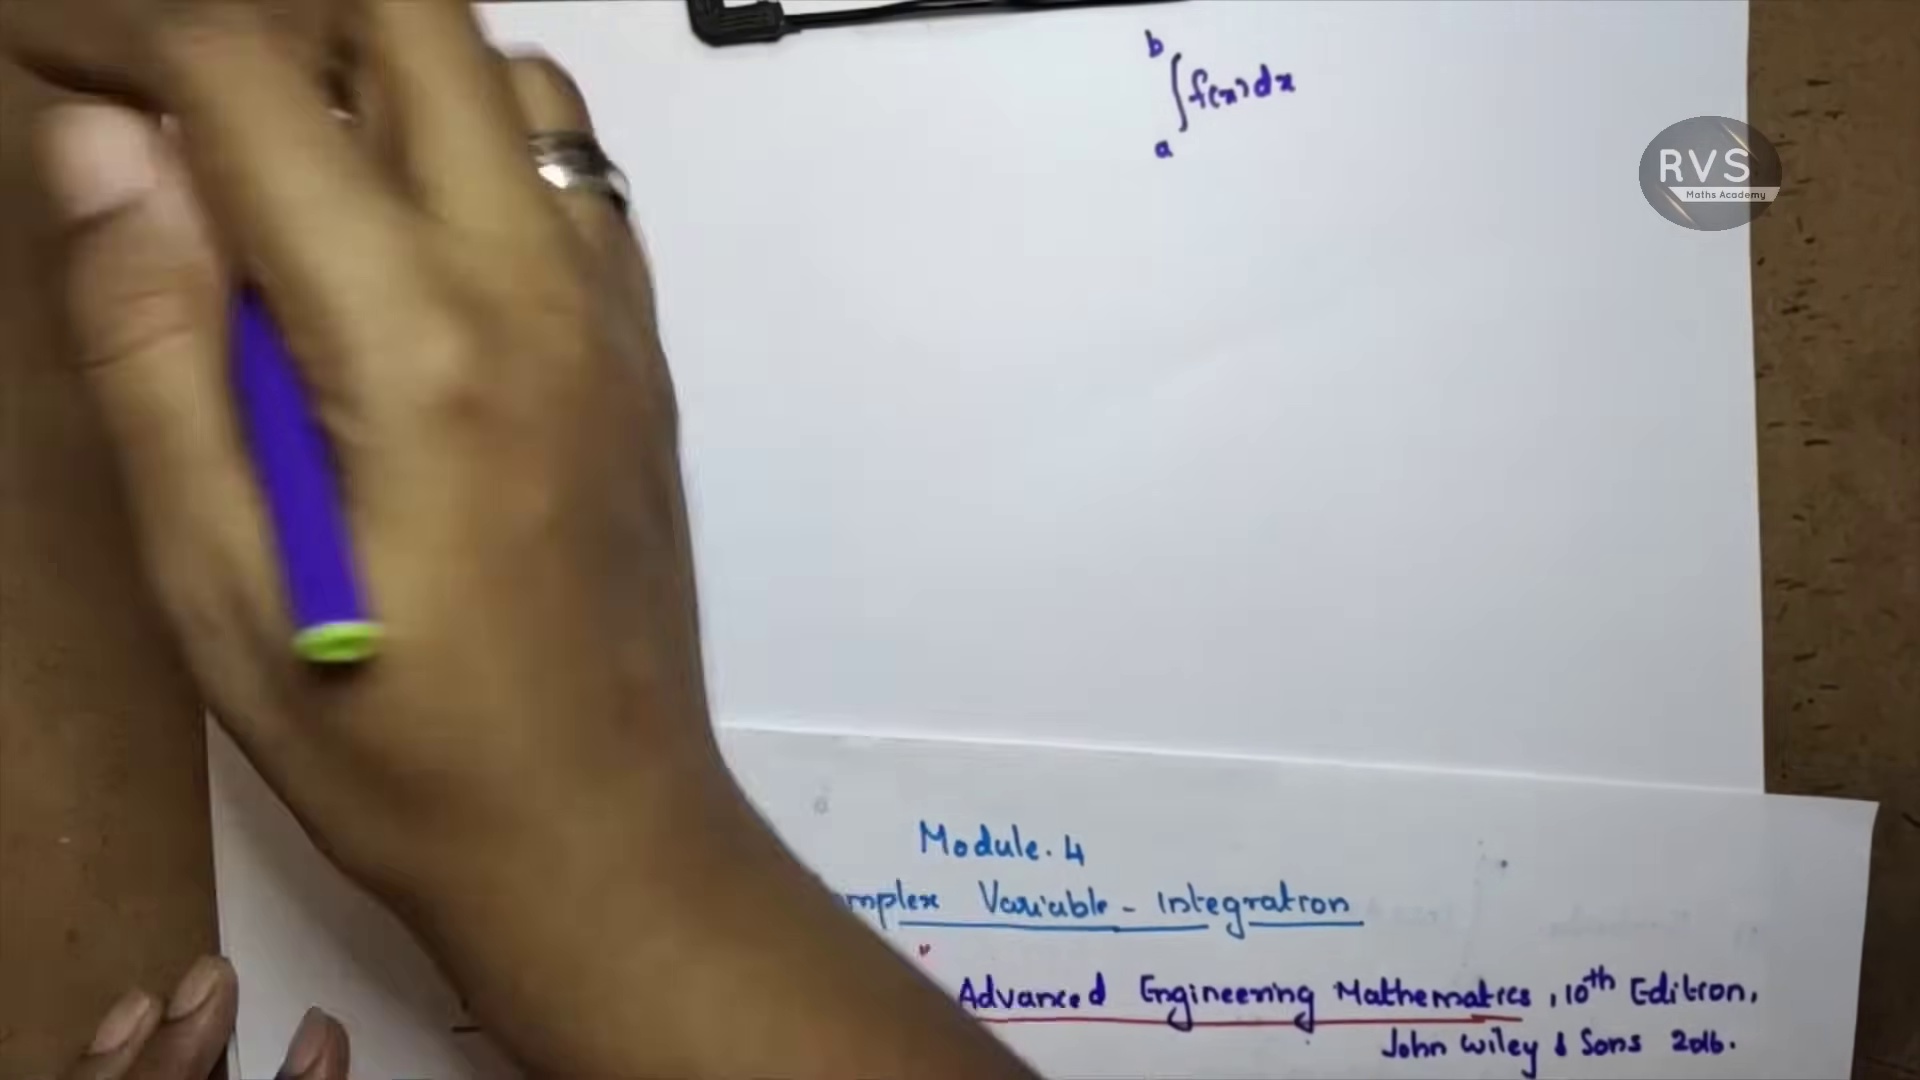 ∫ₐᵇ f(x) dx
RVS
Maths Academy
Module. 4
Variable - Integration
Advanced Engineering Mathematics, 10th Edition,
John Wiley & Sons 2016.